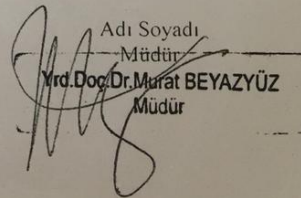 Adı Soyadı
Müdür
Yrd.Doç.Dr.Murat BEYAZYÜZ
Müdür